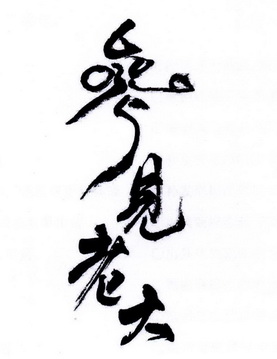 參見老大